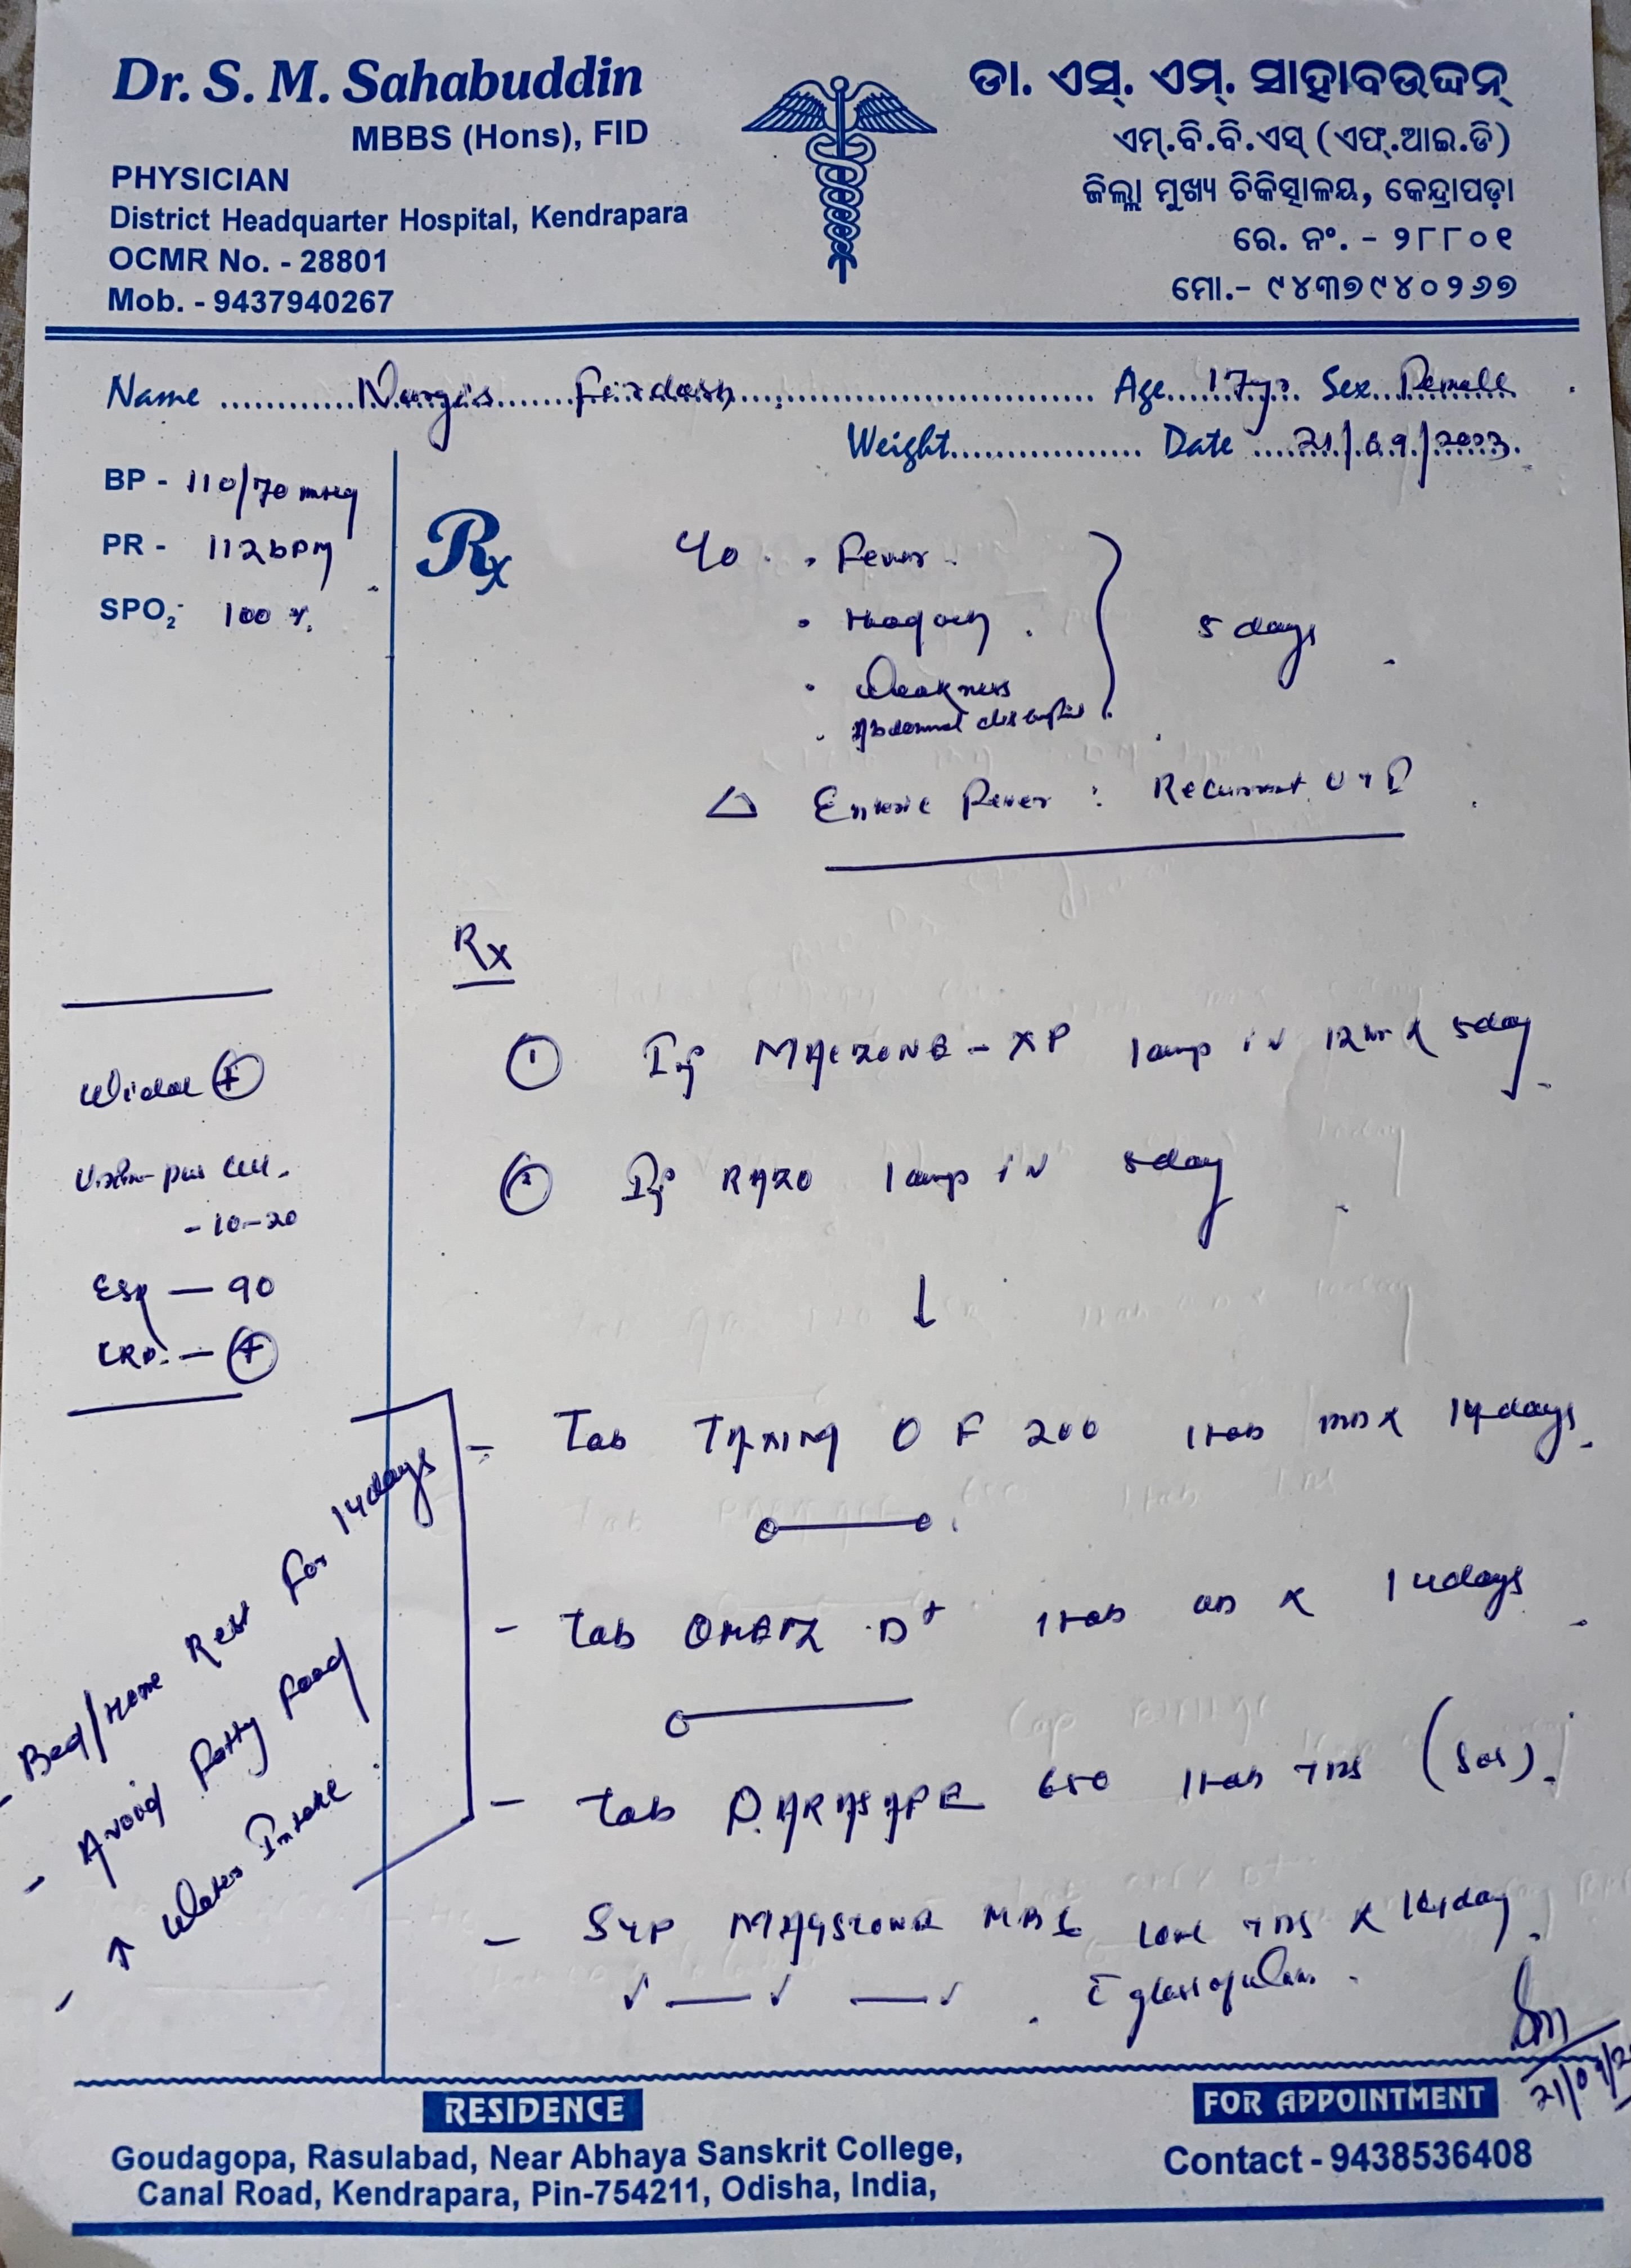 Dr. S. M. Sahabuddin
MBBS (Hons), FID
PHYSICIAN
District Headquarter Hospital, Kendrapara
OCMR No. - 28801
Mob. - 9437940267
ଡା. ଏସ୍. ଏମ୍. ସାହାବଉଦ୍ଦିନ୍
ଏମ୍.ବି.ବି.ଏସ୍ (ଏଫ୍.ଆଇ.ଡି)
ଜିଲ୍ଲା ମୁଖ୍ୟ ଚିକିତ୍ସାଳୟ, କେନ୍ଦ୍ରାପଡ଼ା
ରେ. ନଂ. - ୨୮୮୦୧
ମୋ.- ୯୪୩୭୯୪୦୨୬୭
Name Nargis Firdash Age 17yr Sex Female
Weight Date 21/09/2023
BP - 110/70 mmHg
PR - 112bpm
SPO₂- 100 %
Rx
C/o . Fever
. Weakness
5 days
Δ Enteric Fever : Recurrent UTI
Rx
① Inj 1amp iv 12hr x 5day
② Inj RAZO 1amp iv 5day
↓
- Tab TAXIM O F 200 1tab x 14days
- Tab OMEZ D+ 1tab x 14days
- Tab 650 1tab TDS (SOS)
- Syp TDS x 14day
Widal (+)
Urine - pus cell
- 10-20
ESR - 90
CRP - (+)
- Bed/Home Rest For 14days
- Avoid Fatty Food
- ↑ Water Intake
21/09/2
RESIDENCE
Goudagopa, Rasulabad, Near Abhaya Sanskrit College,
Canal Road, Kendrapara, Pin-754211, Odisha, India,
FOR APPOINTMENT
Contact - 9438536408